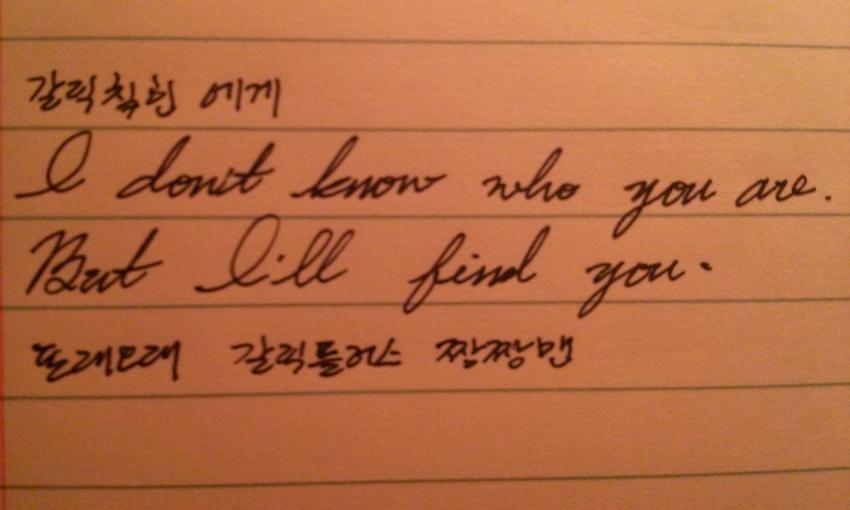 갈릭칰힌 에게
I don't know who you are.
But I'll find you.
또래오래 갈릭플러스 짱짱맨